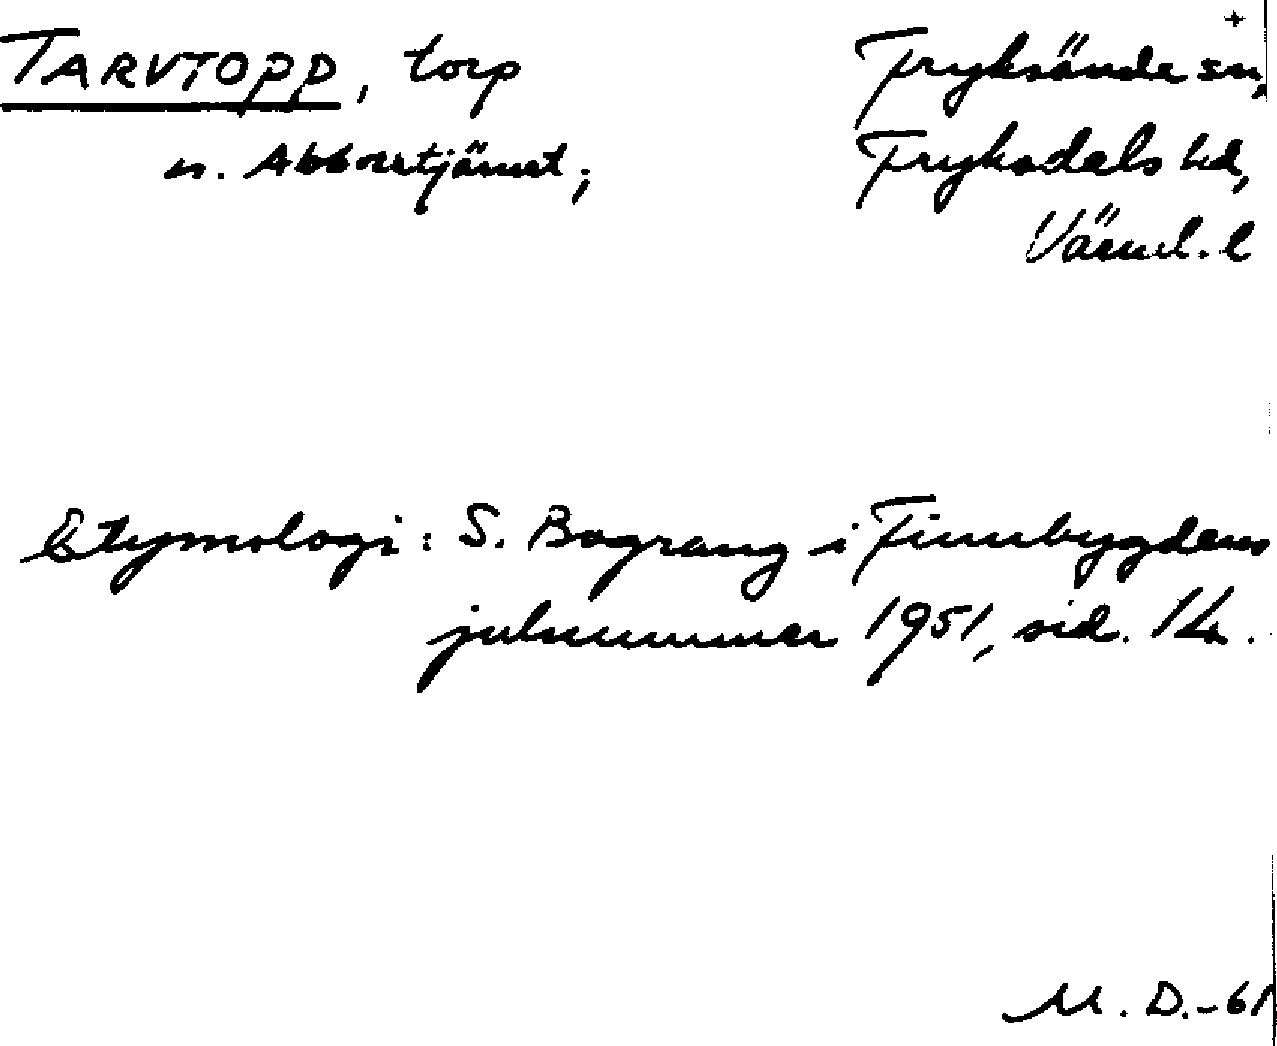 +
TARVTOPP, torp Fryksände sn,
n. Abborrtjärnet; Fryksdals hd,
Värml. l
Etymologi: S. Bograng i Finnbygdens
julnummer 1951, sid. 14.
M. D. -61